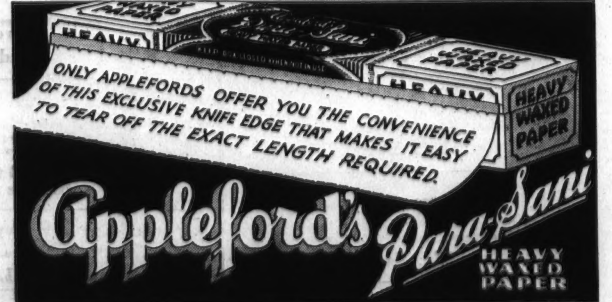 HEAVY
Para-Sani
HEAVY
WAXED
PAPER
HEAVY
HEAVY
WAXED
PAPER
ONLY APPLEFORDS OFFER YOU THE CONVENIENCE
OF THIS EXCLUSIVE KNIFE EDGE THAT MAKES IT EASY
TO TEAR OFF THE EXACT LENGTH REQUIRED.
Appleford's
Para-Sani
HEAVY
WAXED
PAPER